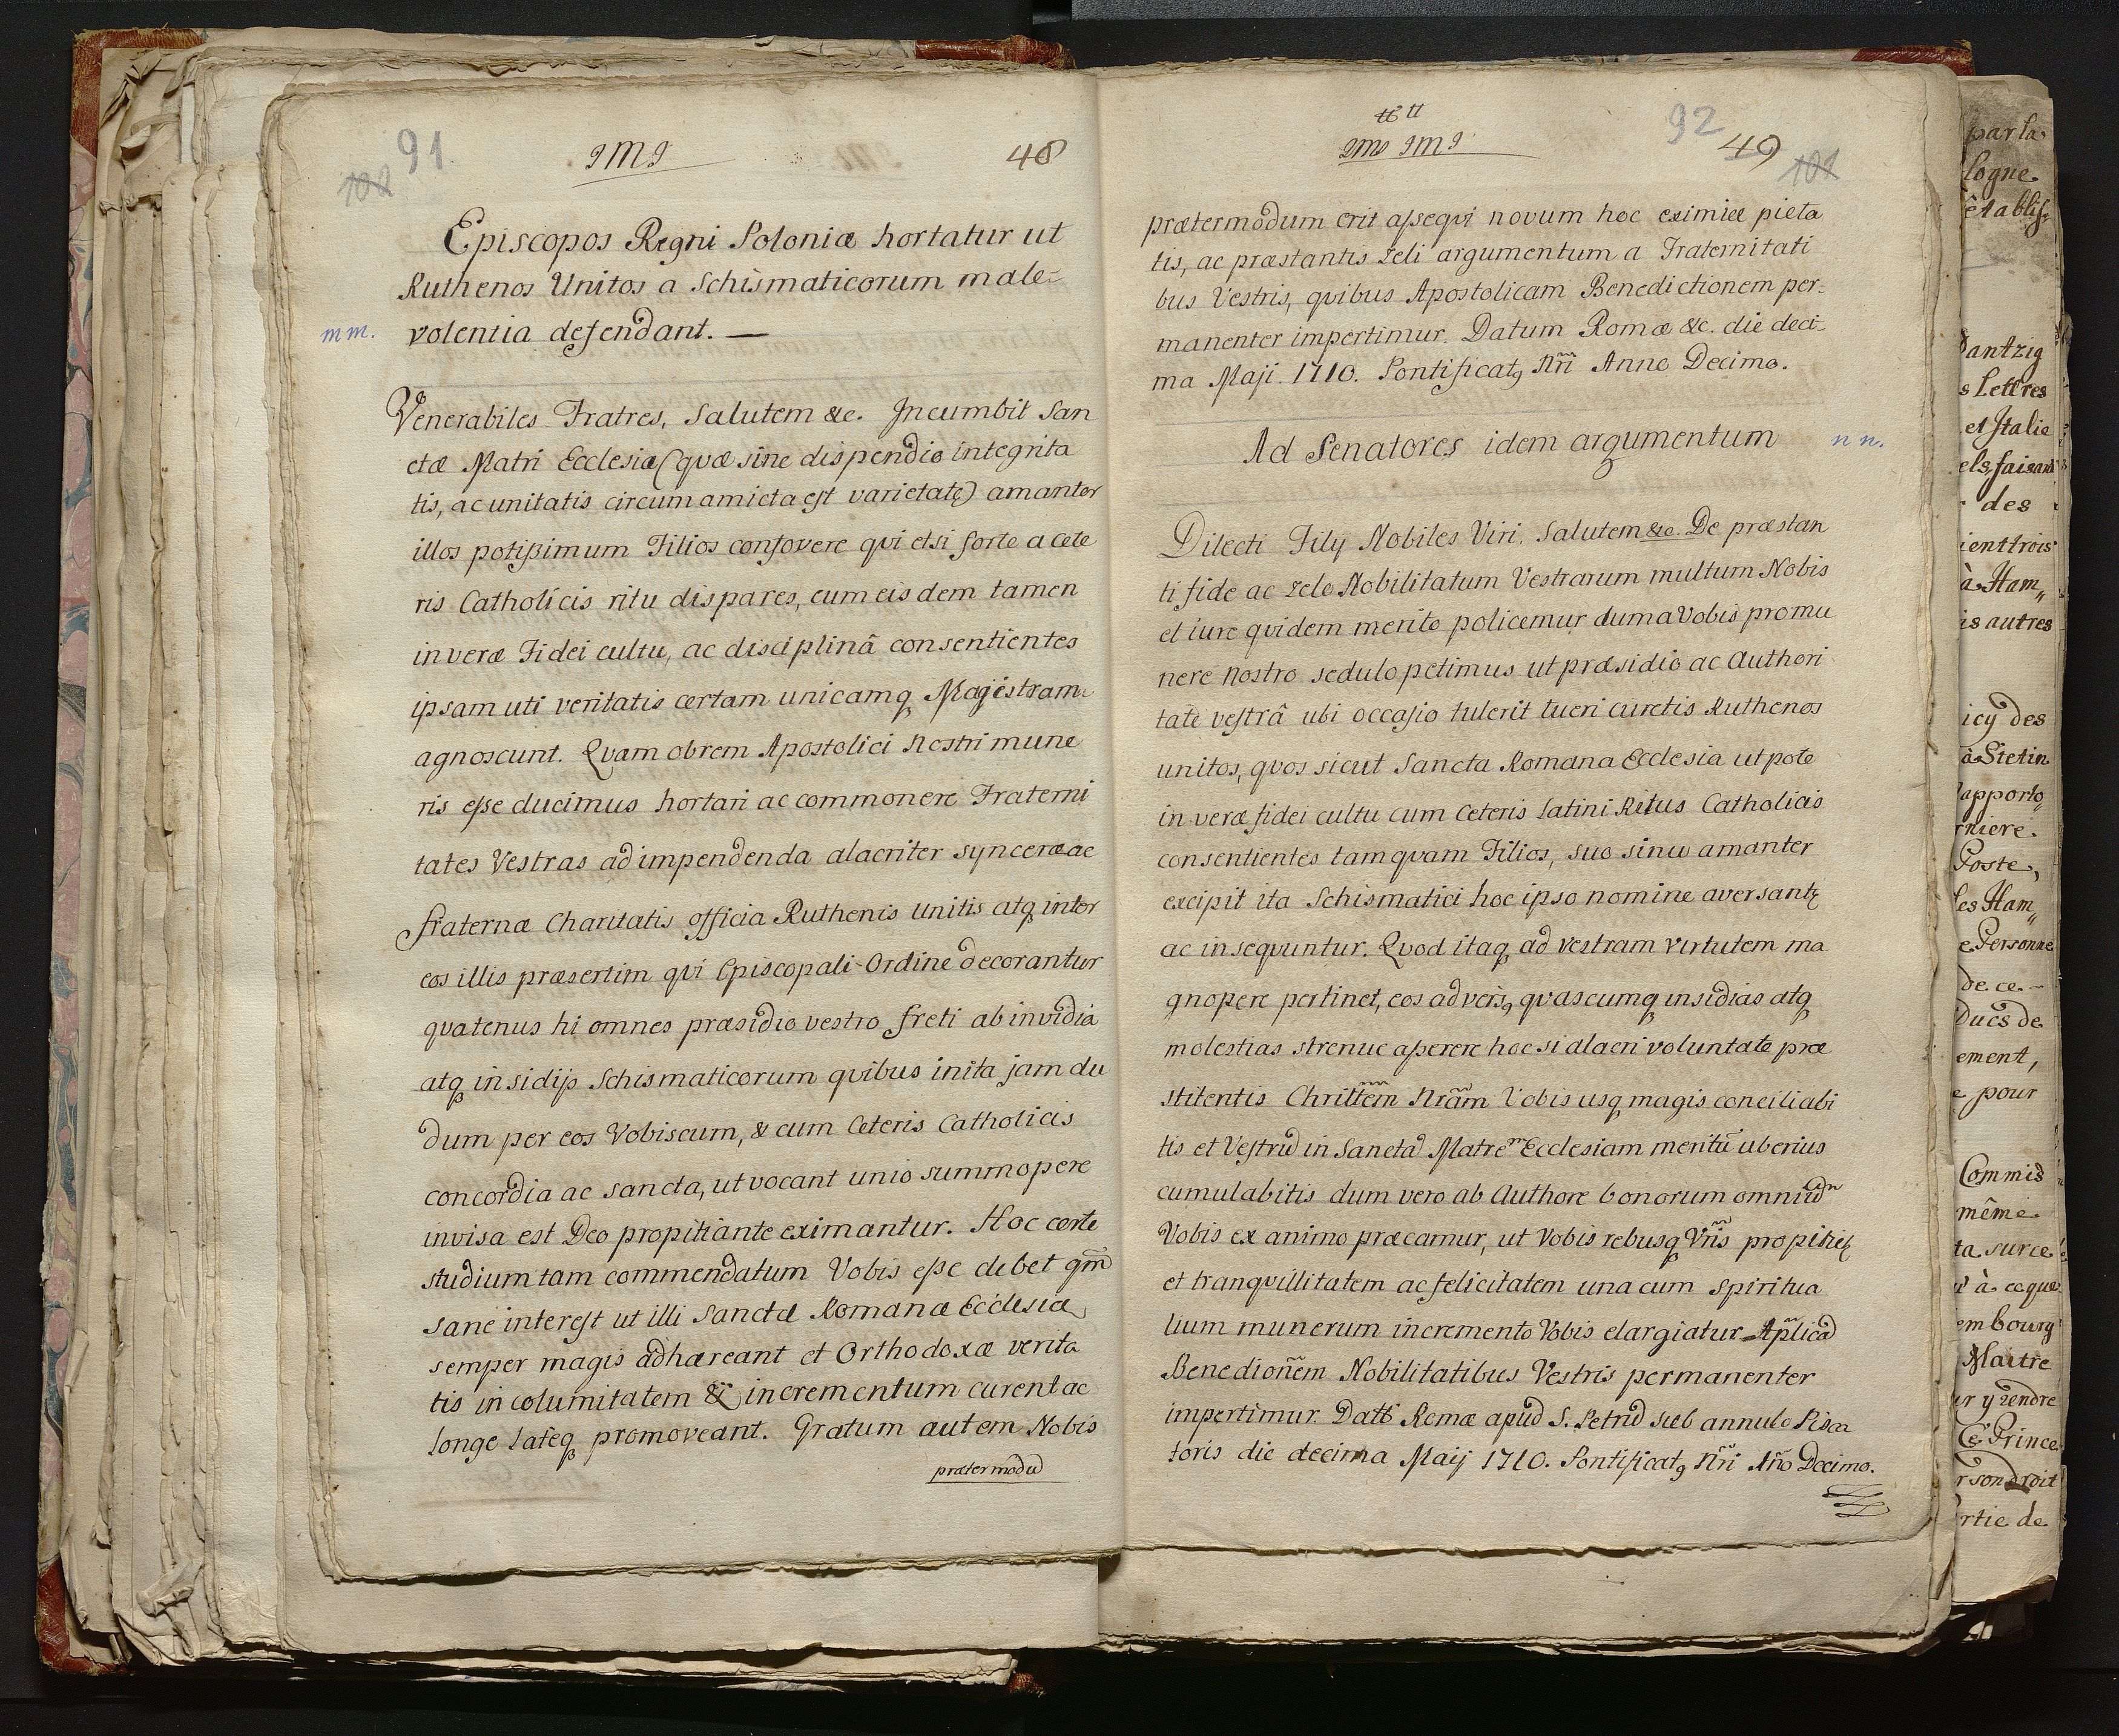 91
JMJ
48
101
Episcopos Regni Poloniæ hortatur ut
Ruthenos Unitos a Schismaticorum male-
mm.
volentia defendant. —
Venerabiles Fratres, Salutem &c. Incumbit San
ctæ Matri Ecclesiæ (quæ sine dispendio integrita
tis, ac unitatis circumamicta est varietate) amanter
illos potißimum Filios confovere qui etsi forte a cete
ris Catholicis ritu dispares, cum eisdem tamen
in veræ Fidei cultu, ac disciplinâ consentientes
ipsam uti veritatis certam unicamq Magistram
agnoscunt. Quam obrem Apostolici Nostri mune
ris esse ducimus hortari ac commonere Fraterni
tates Vestras ad impendenda alacriter synceræ ac
fraternæ Charitatis officia Ruthenis Unitis atq inter
eos illis præsertim qui Episcopali Ordine decorantur
quatenus hi omnes præsidio vestro freti ab invidia
atq insidijs Schismaticorum quibus inita jam du
dum per eos Vobiscum, & cum Ceteris Catholicis
concordia ac sancta, ut vocant unio summopere
invisa est Deo propitiante eximantur. Hoc certe
studium tam commendatum Vobis esse debet qm̃
sane interest ut illi Sanctæ Romanæ Ecclesiæ
semper magis adhæreant et Orthodoxæ verita
tis incolumitatem & incrementum curent ac
longe lateq promoveant. Gratum autem Nobis
prætermodũ
92
JMJ
49
101
prætermodum erit assequi novum hoc eximiæ pieta
tis, ac præstantis zeli argumentum a Fraternitati
bus Vestris, quibus Apostolicam Benedictionem per-
manenter impertimur. Datum Romæ &c. die deci-
ma Maji. 1710. Pontificat9 Nr̃i Anno Decimo.
Ad Senatores idem argumentum
n n.
Dilecti Filij Nobiles Viri. Salutem &c. De præstan
ti fide ac zelo Nobilitatum Vestrarum multum Nobis
et iure quidem merito policemur dum a Vobis pro mu
nere nostro sedulo petimus ut præsidio ac Authori
tate vestrâ ubi occasio tulerit tueri curetis Ruthenos
unitos, quos sicut Sancta Romana Ecclesia utpote
in veræ fidei cultu cum Ceteris Latini Ritus Catholicis
consentientes tamquam Filios, suo sinu amanter
excipit ita Schismatici hoc ipso nomine aversantr
ac insequuntur. Quod itaq ad vestram virtutem ma
gnopere pertinet, eos advers9 quascumq insidias atq
molestias strenue asserere hoc si alacri voluntate præ
stitentis Chritt̃em Nr̃am Vobis usq magis conciliabi
tis et Vestrũ in Sanctã Matrem Ecclesiam meritũ uberius
cumulabitis dum vero ab Authore bonorum omniũ
Vobis ex animo præcamur, ut Vobis rebusq Vr̃is propitiet
et tranquillitatem ac felicitatem una cum spiritua
lium munerum incremento Vobis elargiatur Ap̃licã
Benedioñem Nobilitatibus Vestris permanenter
impertimur. Datt Romæ apud S. Petrũ sub annulo Pisca
toris die decima Maij 1710. Pontificat9 Nr̃i Añ̃o Decimo.
par la
logne
établis
Dantzig
s Lettres
et Italie
els, faisant
des
ient trois
à Ham„
is autres
icy des
à Stetin
apporto„
rniere.
Poste,
les Ham„
e Personne
de ce
Ducs de
ement,
e pour
Commis
même
ta surce
à ce que
embourg
Maitre
ur y rendre
Ce Prince
r son droit
rtie de